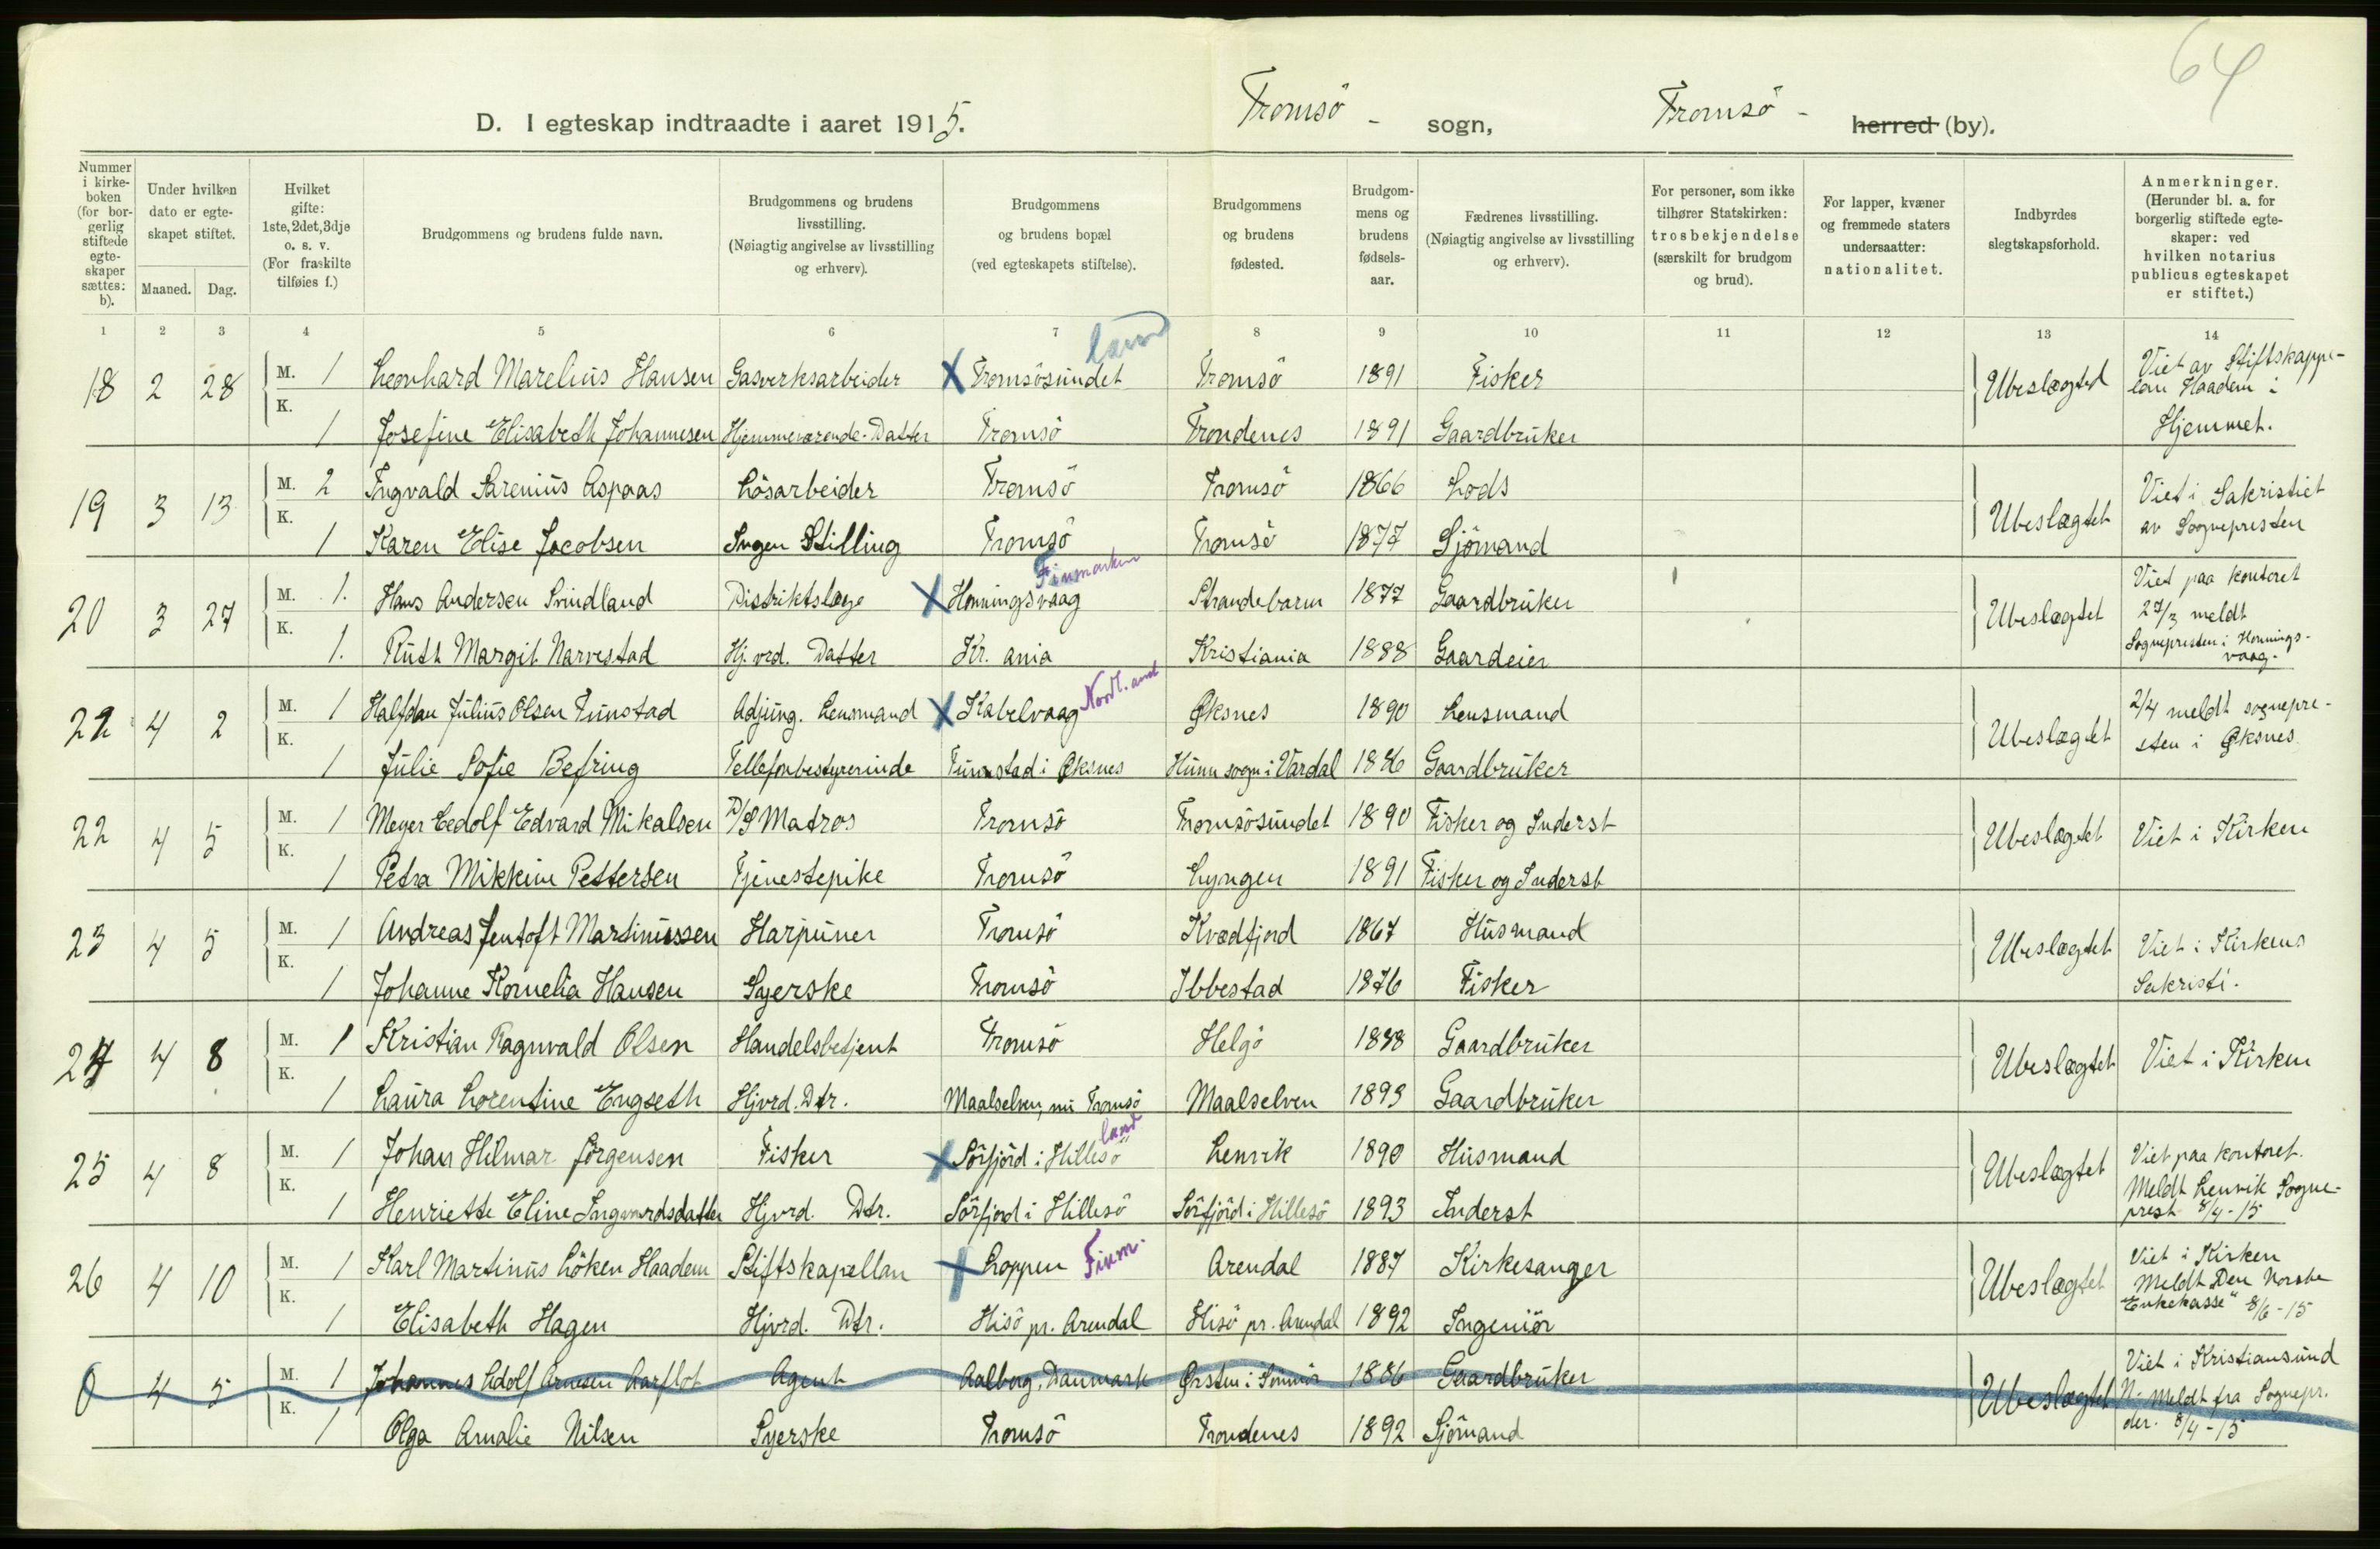 64
D. I egteskap indtraadte i aaret 1915. Tromsö - sogn, Tromsö - herred (by).
Nummer i kirkeboken (for borgerlig stiftede egteskaper sættes: b).
Under hvilken dato er egteskapet stiftet.
Maaned. Dag.
Hvilket gifte: 1ste, 2det, 3dje o. s. v. (For fraskilte tilføies f.)
Brudgommens og brudens fulde navn.
Brudgommens og brudens livsstilling. (Nøiagtig angivelse av livsstilling og erhverv).
Brudgommens og brudens bopæl (ved egteskapets stiftelse).
Brudgommens og brudens fødested.
Brudgommens og brudens fødselsaar.
Fædrenes livsstilling. (Nøiagtig angivelse av livsstilling og erhverv).
For personer, som ikke tilhører Statskirken: trosbekjendelse (særskilt for brudgom og brud).
For lapper, kvæner og fremmede staters undersaatter: nationalitet.
Indbyrdes slegtskapsforhold.
Anmerkninger. (Herunder bl. a. for borgerlig stiftede egteskaper: ved hvilken notarius publicus egteskapet er stiftet.)
1 2 3 4 5 6 7 8 9 10 11 12 13 14
18 2 28 M. 1 Leonhard Marelius Hansen Gasverksarbeider X Tromsösundet land Tromsö 1891 Fisker Ubeslægted Viet av Stiftskappelan Haadem i Hjemmet.
K. 1 Josefine Elisabeth Johannesen Hjemmeværende-Datter Tromsö Trondenes 1891 Gaardbruker
19 3 13 M. 2 Ingvald Sarenius Aspaas Lösarbeider Tromsö Tromsö 1866 Lods Ubeslægtet Viet i Sakristiet av Sognepresten
K. 1 Karen Elise Jacobsen Ingen Stilling Tromsö Tromsö 1877 Sjömand
20 3 27 M. 1. Hans Andersen Svindland Distriktslæge X Honningsvaag Finmarken Strandebarm 1877 Gaardbruker Ubeslægtet Viet paa kontoret 27/3 meldt Sognepresten i Honningsvaag.
K. 1. Ruth Margit Narvestad Hj. vrd. Datter Kr. ania Kristiania 1888 Gaardeier
21 4 2 M. 1 Halfdan Julius Olsen Tunstad Adjung. Lensmand X Kabelvaag Nordland Øksnes 1890 Lensmand Ubeslægtet 2/4 meldt sognepresten i Øksnes
K. 1 Julie Sofie Befring Tellefonbestyrerinde Tunstad i Øksnes Hunn sogn i Vardal 1886 Gaardbruker
22 4 5 M. 1 Meyer Cedolf Edvard Mikalsen D/S Matros Tromsö Tromsösundet 1890 Fisker og Inderst Ubeslægtet Viet i Kirken
K. 1 Petra Mikkine Pettersen Tjenestepike Tromsö Lyngen 1891 Fisker og Inderst
23 4 5 M. 1 Andreas Jentoft Martinussen Harpuner Tromsö Kvædfjord 1867 Husmand Ubeslægtet Viet i Kirkens Sakristi.
K. 1 Johanne Kornelia Hansen Syerske Tromsö Ibbestad 1876 Fisker
24 4 8 M. 1 Kristian Ragnvald Olsen Handelsbetjent Tromsö Helgö 1888 Gaardbruker Ubeslægtet Viet i Kirken
K. 1 Laura Lorentine Engseth Hjvrd. Dtr. Maalselven, nu Tromsö Maalselven 1893 Gaardbruker
25 4 8 M. 1 Johan Hilmar Jörgensen Fisker X Sörfjord i Hillesö land Lenvik 1890 Husmand Ubeslægtet Viet paa kontoret. Meldt Lenvik Sogneprest 8/4-15
K. 1 Henriette Eline Ingvardsdatter Hjvrd. Dtr. Sörfjord i Hillesö Sörfjord i Hillesö 1893 Inderst
26 4 10 M. 1 Karl Martinus Löken Haadem Stiftskapellan X Loppen Finm. Arendal 1887 Kirkesanger Ubeslægtet Viet i Kirken Meldt Den Norske Enkekasse" 8/6-15
K. 1 Elisabeth Hagen Hjvrd. Dtr. Hisö pr. Arendal Hisö pr. Arendal 1892 Ingeniör
0 4 5 M. 1 Johannes Adolf Arnesen Aarflot Agent Aalborg, Danmark Ørsten i Sönmör 1886 Gaardbruker Ubeslægtet Viet i Kristiansund N. Meldt fra Sognepr. der. 8/4-15
K. 1 Olga Amalie Nilsen Syerske Tromsö Trondenes 1892 Sjömand